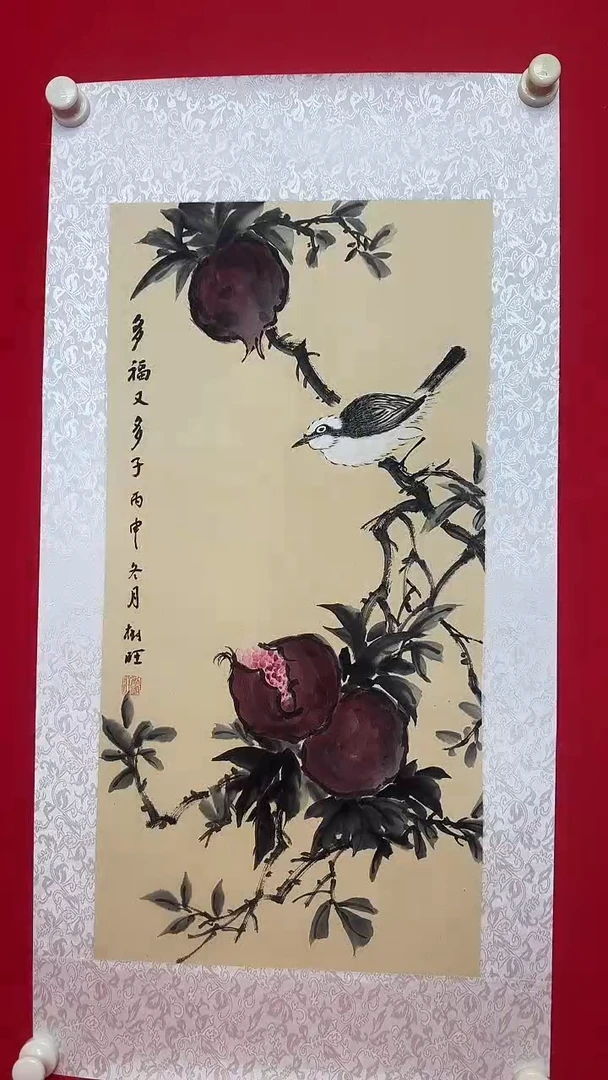 多福又多子丙申冬月树旺